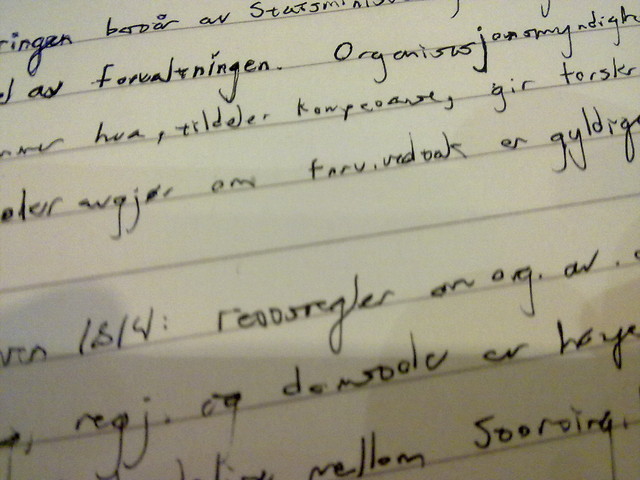 ringen består av Statsminis
av forvaltningen. Organisasjonsmyndigh
hva, tildeler kompetanse, gir forskr
avgjør om forv.vedtak er gyldige
1814: rettsregler om org. av
regj. og domstole er høye
mellom